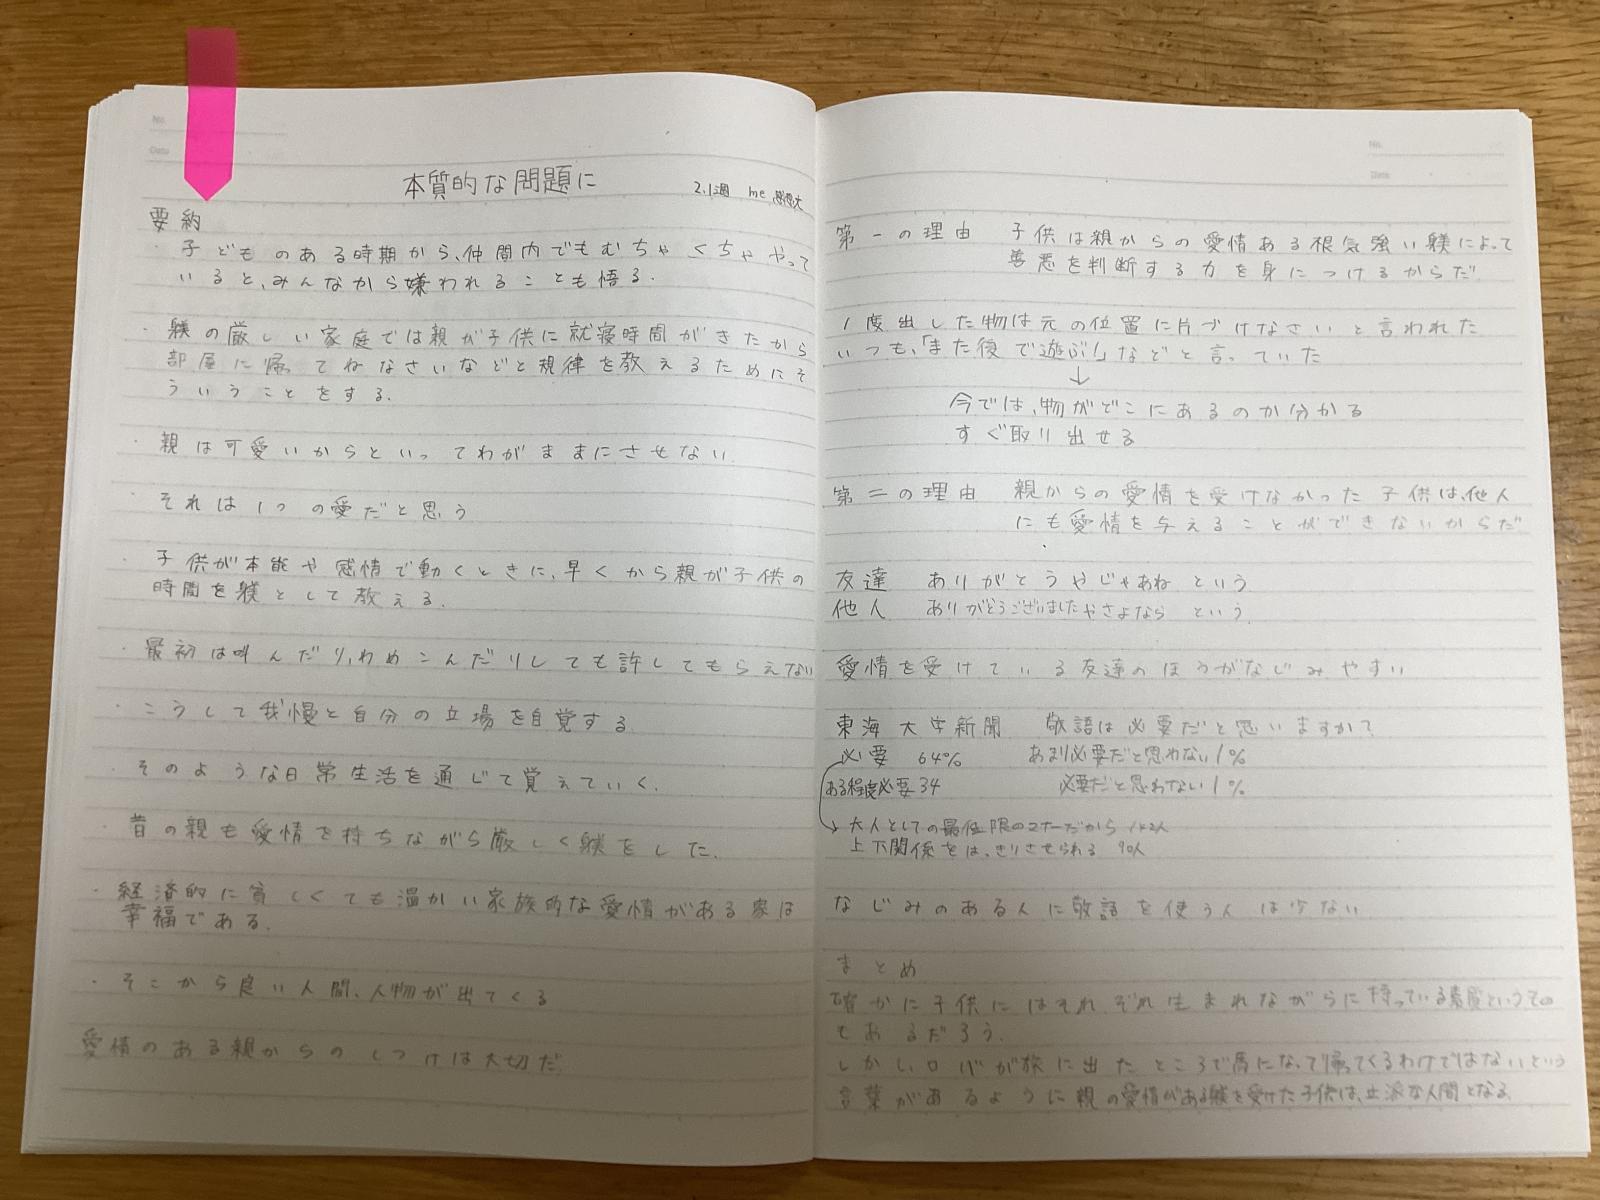 No.
Date
本質的な問題に
2.1週 me 感想文
要約
・子どものある時期から、仲間内でもむちゃくちゃやって
いると、みんなから嫌われることも悟る.
・躾の厳しい家庭では親が子供に就寝時間がきたから
部屋に帰ってねなさいなどと規律を教えるためにそ
ういうことをする.
・親は可愛いからといってわがままにさせない
・それは1つの愛だと思う
・子供が本能や感情で動くときに、早くから親が子供の
時間を躾として教える.
・最初は叫んだり、わめこんだりしても許してもらえない
・こうして我慢と自分の立場を自覚する.
・そのような日常生活を通じて覚えていく.
・昔の親も愛情を持ちながら厳しく躾をした.
・経済的に貧しくても温かい家族的な愛情がある家は
幸福である.
・そこから良い人間、人物が出てくる
愛情のある親からのしつけは大切だ
No.
Date
第一の理由 子供は親からの愛情ある根気強い躾によって
善悪を判断する力を身につけるからだ
1度出した物は元の位置に片づけなさいと言われた
いつも、「また後で遊ぶ!」などと言っていた
↓
今では、物がどこにあるのか分かる
すぐ取り出せる
第二の理由 親からの愛情を受けなかった子供は、他人
にも愛情を与えることができないからだ
友達 ありがとうやじゃあね という
他人 ありがとうございましたやさよなら という
愛情を受けている友達のほうがなじみやすい
東海大学新聞 敬語は必要だと思いますか?
必要 64% あまり必要だと思わない1%
ある程度必要34 必要だと思わない1%
大人としての最低限のマナーだから 142人
上下関係をはっきりさせられる 90人
なじみのある人に敬語を使う人は少ない
まとめ
確かに子供にはそれぞれ生まれながらに持っている素質というもの
であるだろう.
しかし、ロバが旅に出たところで馬になって帰ってくるわけではないという
言葉があるように親の愛情がある躾を受けた子供は、立派な人間となる.